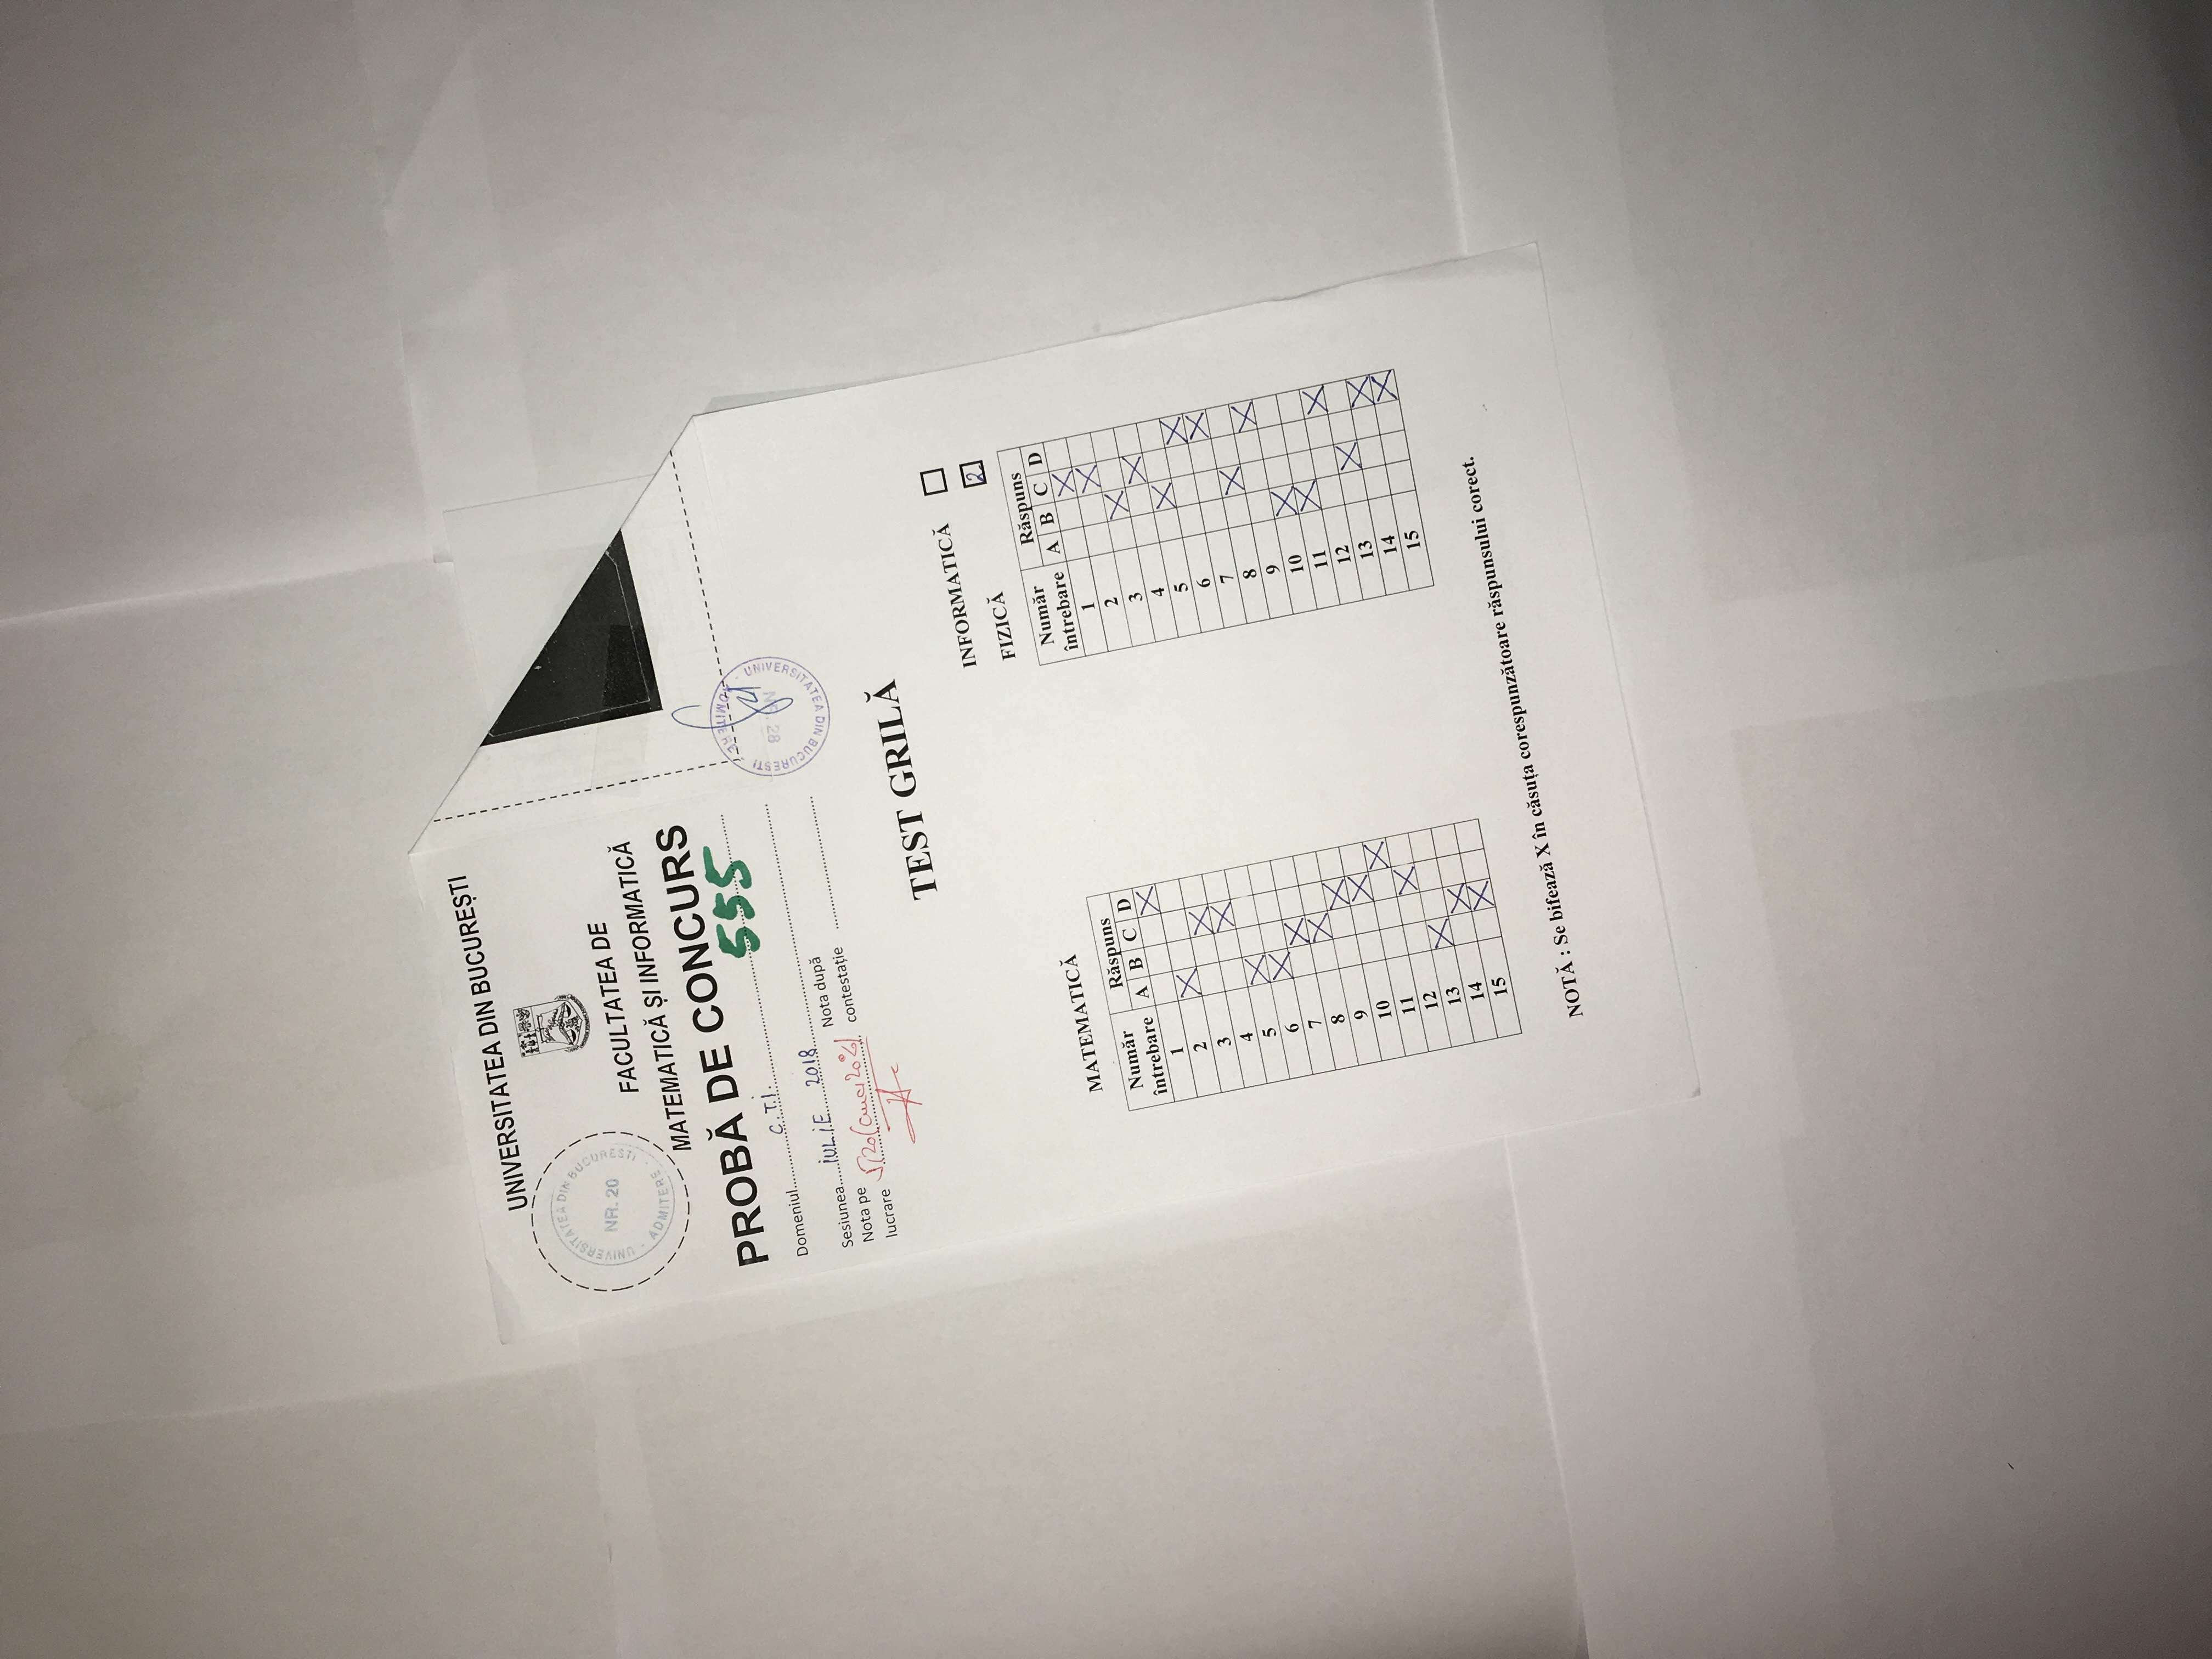 UNIVERSITATEA DIN BUCUREȘTI
UNIVERSITATEA DIN BUCUREȘTI
NR. 20
ADMITERE
FACULTATEA DE
MATEMATICĂ ȘI INFORMATICĂ
PROBĂ DE CONCURS
555
Domeniul C.T.I.
Sesiunea IULIE 2018
Nota pe lucrare 5,20 (cinci 20%)
Nota după contestație
UNIVERSITATEA DIN BUCUREȘTI
NR. 28
ADMITERE
TEST GRILĂ
INFORMATICĂ
FIZICĂ 2
Număr întrebare Răspuns
A B C D
1 X
2 X
3 X
4 X
5 X
6 X
7 X
8 X
9 X
10 X
11 X
12 X
13 X
14 X
15 X
MATEMATICĂ
Număr întrebare Răspuns
A B C D
1 X
2 X
3 X
4 X
5 X
6 X
7 X
8 X
9 X
10 X
11 X
12 X
13 X
14 X
15 X
NOTĂ : Se bifează X în căsuța corespunzătoare răspunsului corect.